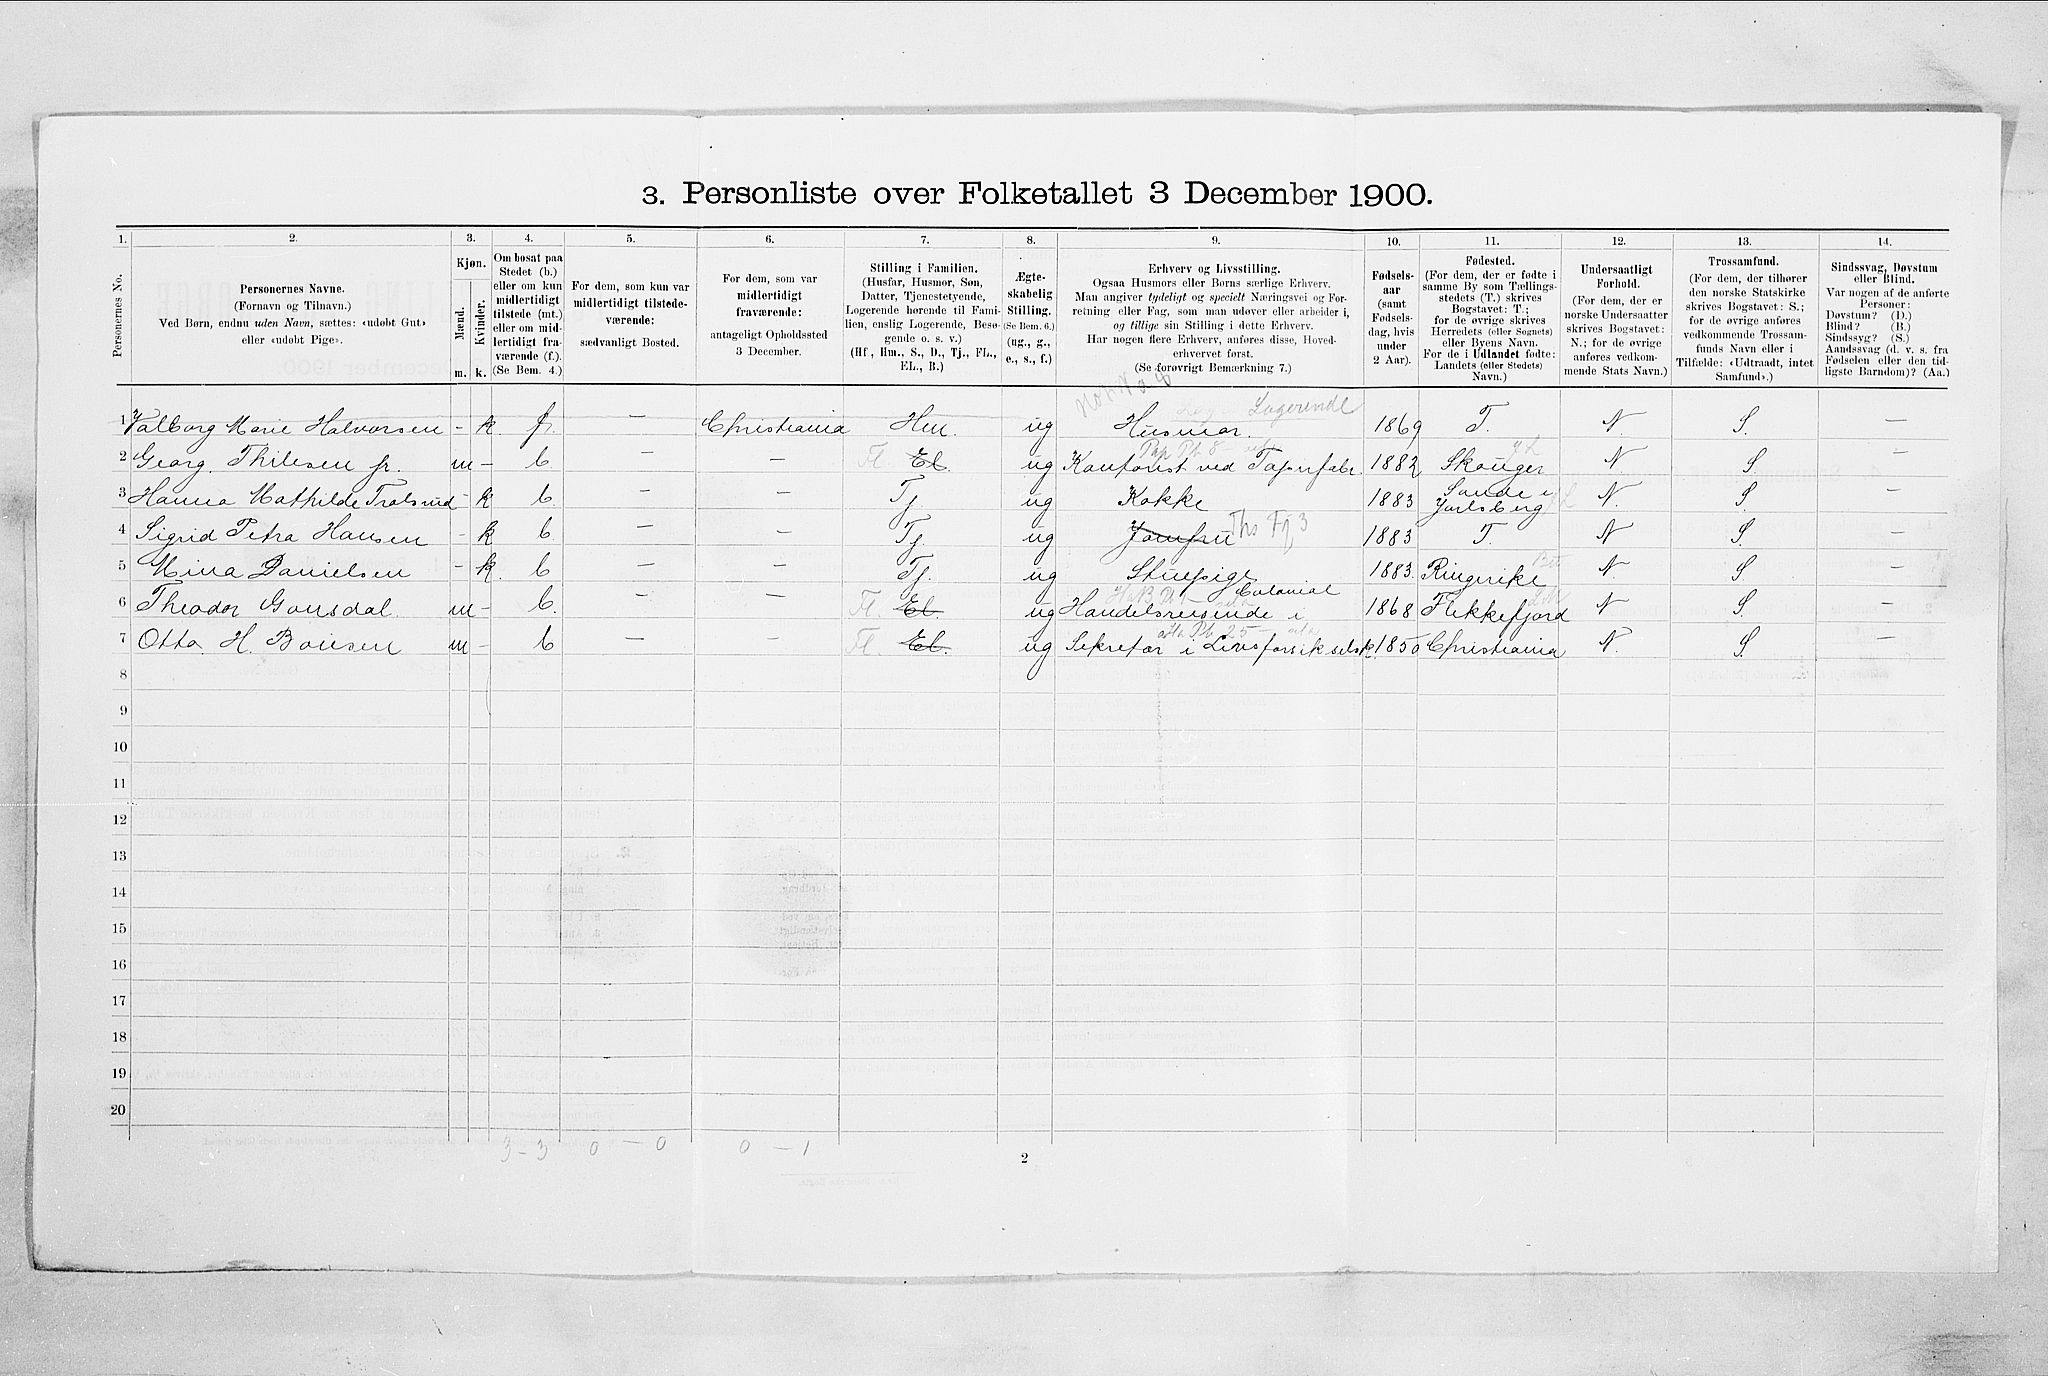 3. Personliste over Folketallet 3 December 1900.
1. 2. 3. 4. 5. 6. 7. 8. 9. 10. 11. 12. 13. 14.
Personernes No.
Personernes Navne.
(Fornavn og Tilnavn.)
Ved Børn, endnu uden Navn, sættes: «udøbt Gut»
eller «udøbt Pige».
Kjøn.
Mænd. Kvinder.
m. k.
Om bosat paa
Stedet (b.)
eller om kun
midlertidigt
tilstede (mt.)
eller om mid-
lertidigt fra-
værende (f.).
(Se Bem. 4.)
For dem, som kun var
midlertidigt tilstede-
værende:
sædvanligt Bosted.
For dem, som var
midlertidigt
fraværende:
antageligt Opholdssted
3 December.
Stilling i Familien.
(Husfar, Husmor, Søn,
Datter, Tjenestetyende,
Logerende hørende til Fami-
lien, enslig Logerende, Besø-
gende o. s. v.)
(Hf., Hm., S., D., Tj., FL.,
EL., B.)
Ægte-
skabelig
Stilling.
(Se Bem. 6.)
(ug., g.,
e., s., f.)
Erhverv og Livsstilling.
Ogsaa Husmors eller Børns særlige Erhverv.
Man angiver tydeligt og specielt Næringsvei og For-
retning eller Fag, som man udøver eller arbeider i,
og tillige sin Stilling i dette Erhverv.
Har nogen flere Erhverv, anføres disse, Hoved-
erhvervet først.
(Se forøvrigt Bemærkning 7.)
Fødsels-
aar
(samt
Fødsels-
dag, hvis
under
2 Aar).
Fødested.
(For dem, der er fødte i
samme By som Tællings-
stedets (T.) skrives
Bogstavet: T.;
for de øvrige skrives
Herredets (eller Sognets)
eller Byens Navn.
For de i Udlandet fødte:
Landets (eller Stedets)
Navn.)
Undersaatligt
Forhold.
(For dem, der er
norske Undersaatter
skrives Bogstavet:
N.; for de øvrige
anføres vedkom-
mende Stats Navn.)
Trossamfund.
(For dem, der tilhører
den norske Statskirke
skrives Bogstavet: S.;
for de øvrige anføres
vedkommende Trossam-
funds Navn eller i
Tilfælde: «Udtraadt, intet
Samfund».)
Sindssvag, Døvstum
eller Blind.
Var nogen af de anførte
Personer:
Døvstum? (D.)
Blind? (B.)
Sindssyg? (S.)
Aandssvag (d. v. s. fra
Fødselen eller den tid-
ligste Barndom)? (Aa.)
Logerende
1 Valborg Marie Halvorsen - k f. — Christiania Hm. ug Husmor. 1869 T. N. S. —
2 Georg. Thilesen jr. m - b. — — El. ug Kontorist ved Tapetfabr. 1882 Skouger N S —
3 Hanna Mathilde Trolsrud - k b. — Tj. ug Kokke 1883 Sande i Jarlsberg N. S. —
4 Sigrid Petra Hansen - k b. — — Tj. ug Jomfru 1883 T. N S. —
5 Mina Danielsen - k. b — — Tj. ug Stuepige 1883. Ringerike N. S —
6 Theodor Gousdal. m - b. — — Fl. El. ug Handelsreisende i Colonial 1868 Flekkefjord N S. —
7 Otto. H. Boiesen m - b — — Fl. El. ug Sekretær i Livsforsikselsk. 1850 Christiania N. S. —
8
9
10
11
12
13
14
15
16
17
18
19
20
3-3 0-0 0-1
2